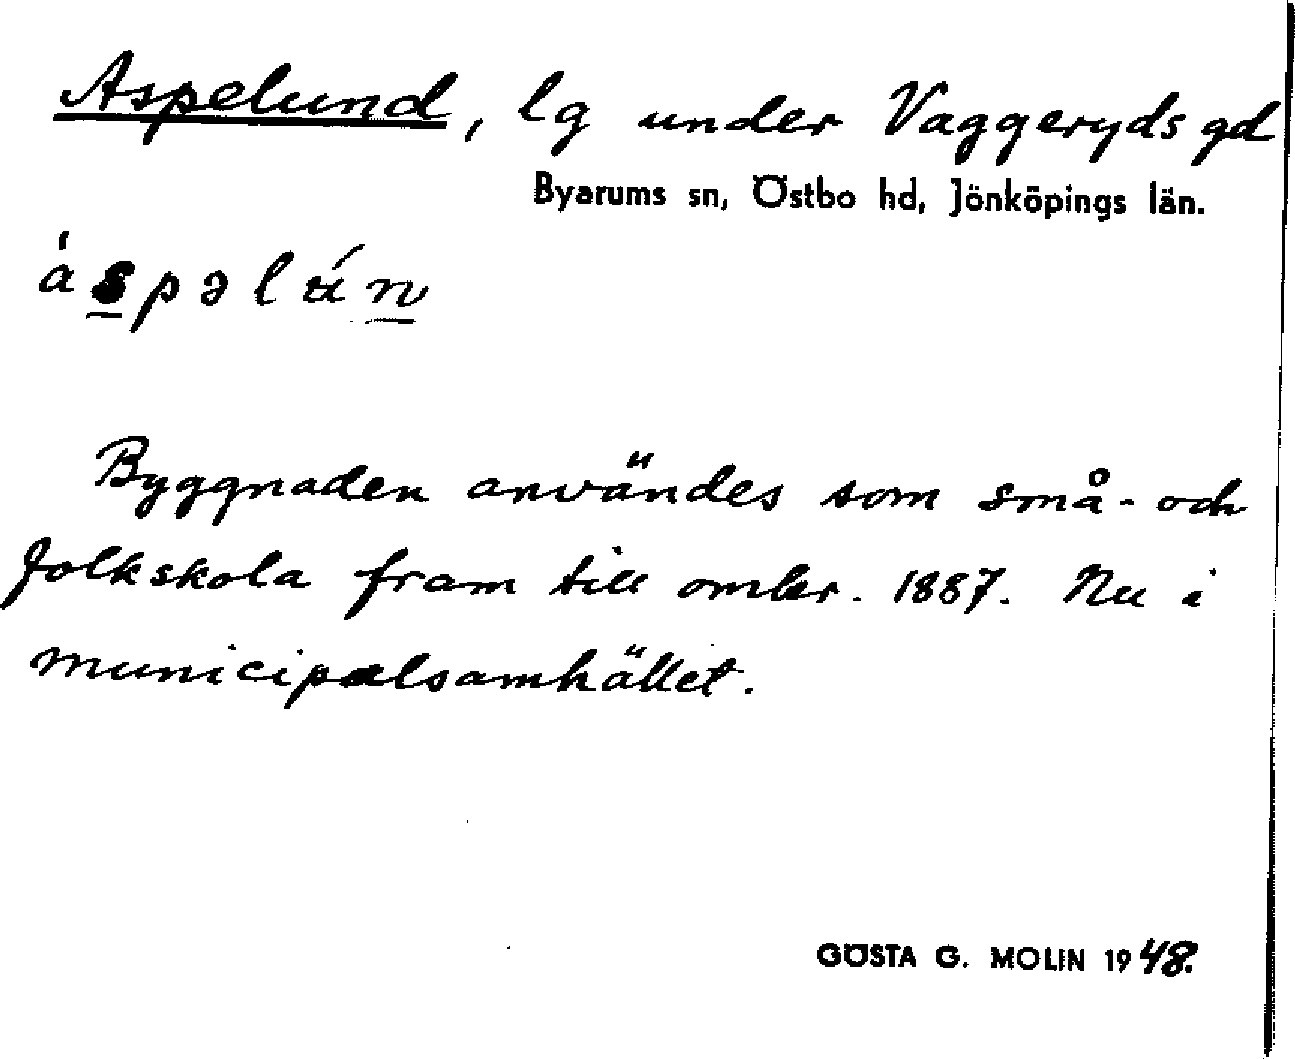 Aspelund, lg under Vaggeryds gd
Byarums sn, Östbo hd, Jönköpings län.
áspəlún
Byggnaden användes som små- och
folkskola fram till omkr. 1887. Nu i
municipalsamhället.
GÖSTA G. MOLIN 1948.